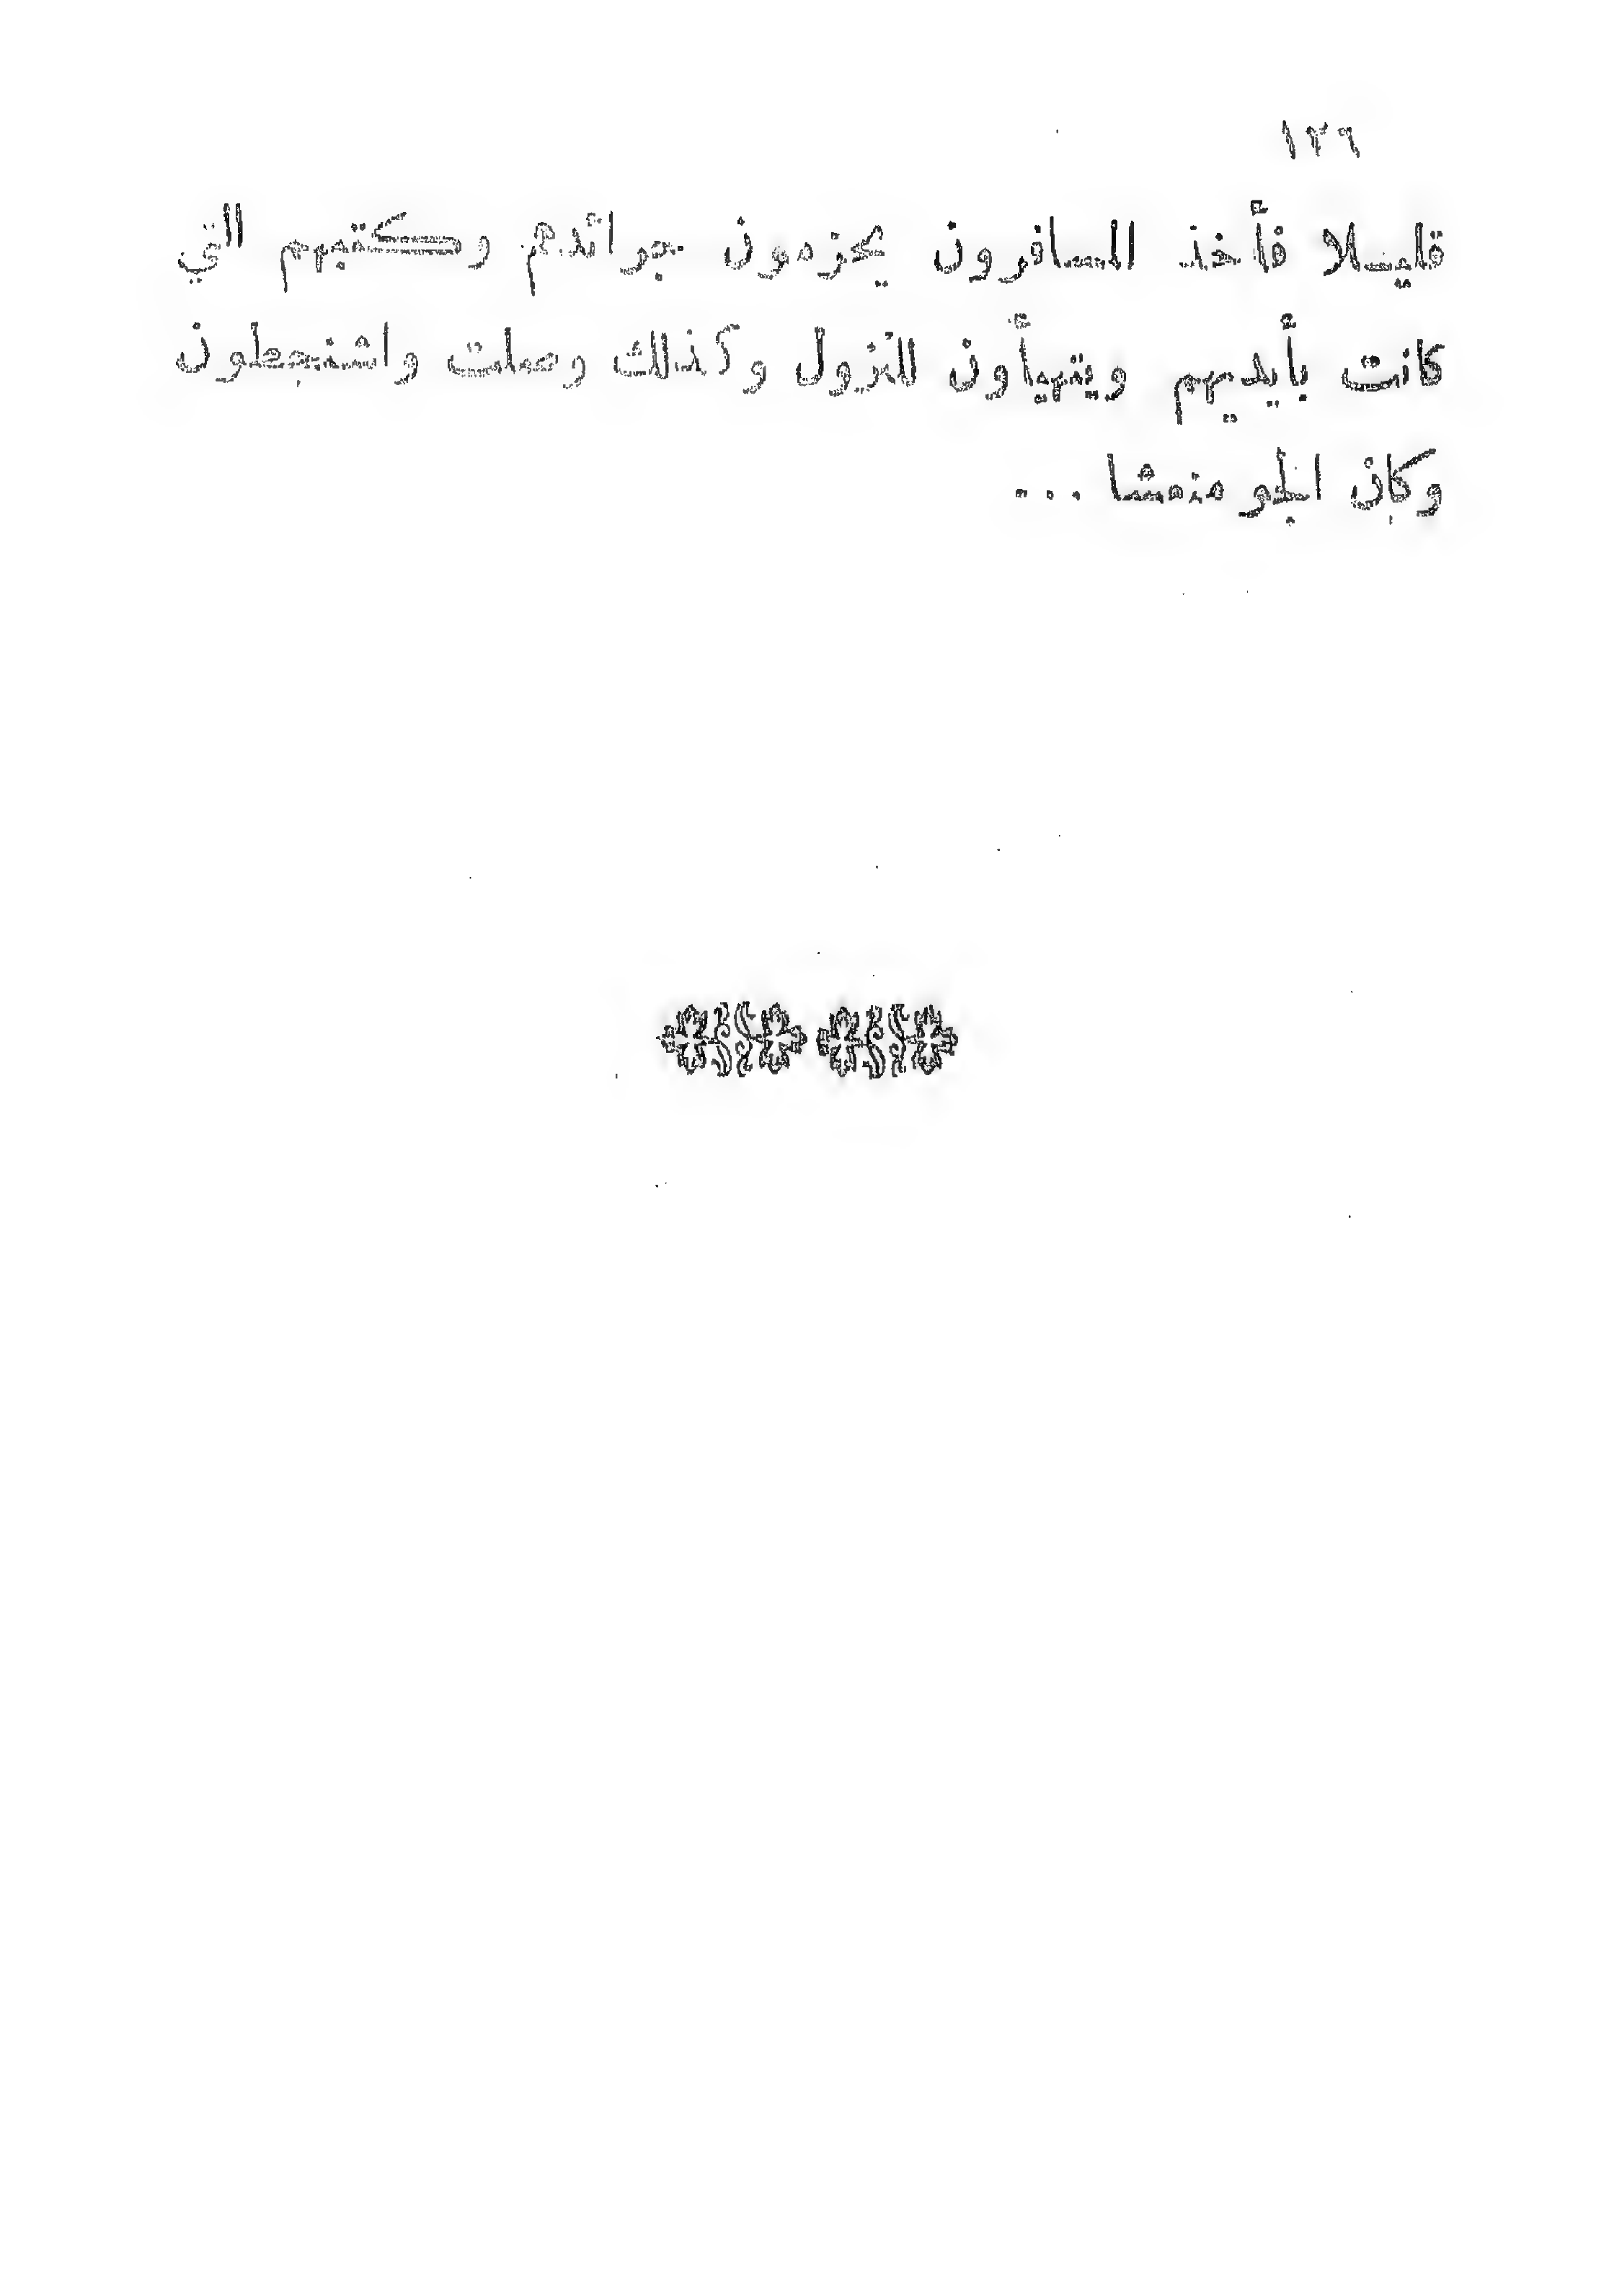 ١٣٦
قليلا فأخذ المسافرون يحزمون جرائدهم وكتبهم التي
كانت بأيديهم ويتهيأون للنزول وكذلك وصلت واشنجطون
وكان الجو منعشا ...